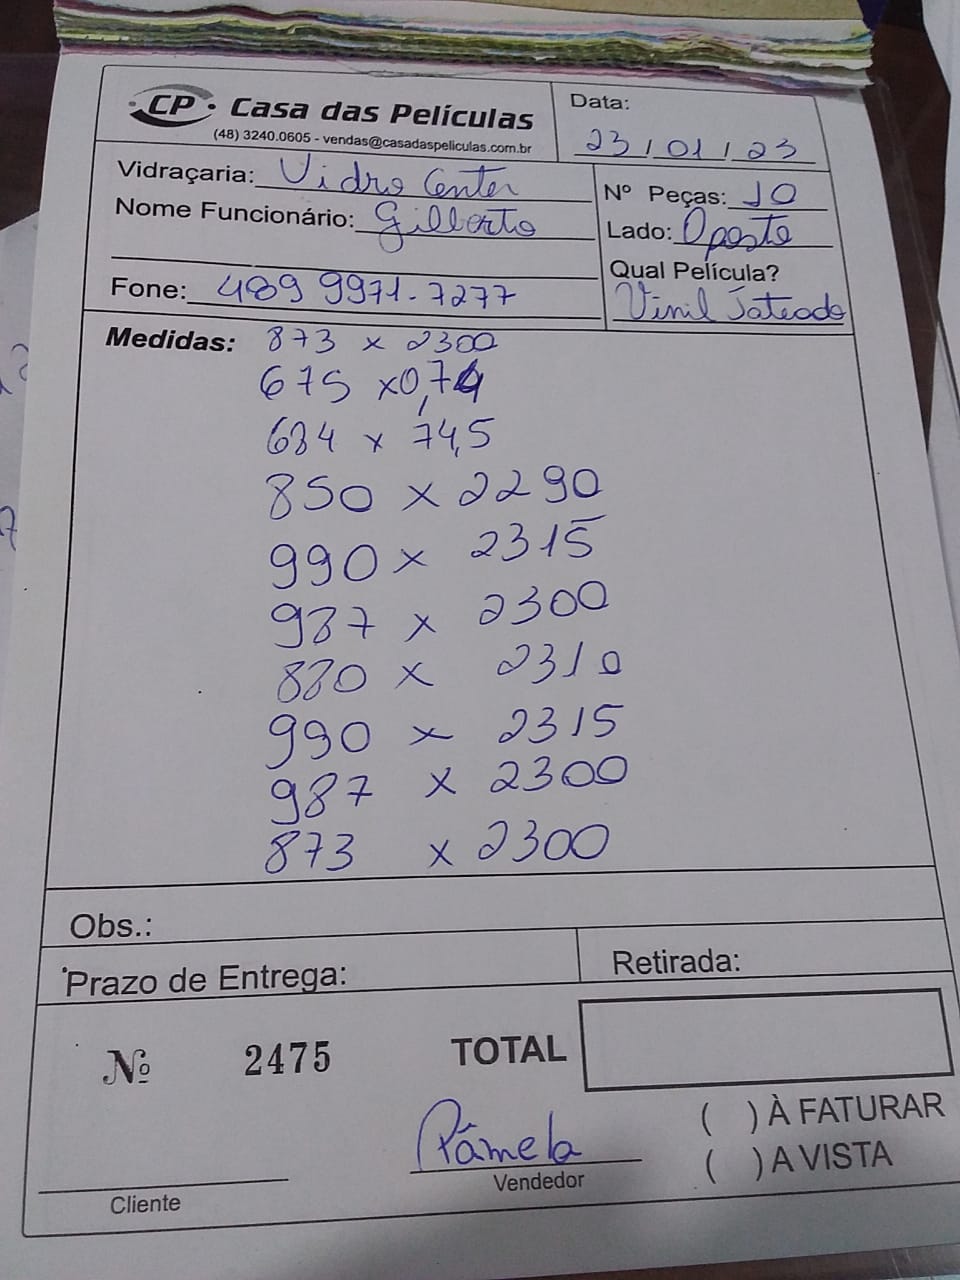 CP Casa das Películas
(48) 3240.0605 - vendas@casadaspeliculas.com.br
Data:
23/01/23
Vidraçaria: Vidro Center
Nº Peças: 10
Nome Funcionário: Gilberto
Lado: Oposto
Qual Película?
Fone: 489 9971-7277
Vinil Jateado
Medidas: 873 x 2300
675 x 0,74
684 x 74,5
850 x 2290
990 x 2315
987 x 2300
880 x 2310
990 x 2315
987 x 2300
873 x 2300
Obs.:
Prazo de Entrega:
Retirada:
Nº 2475
TOTAL
( ) À FATURAR
Pâmela
( ) A VISTA
Vendedor
Cliente